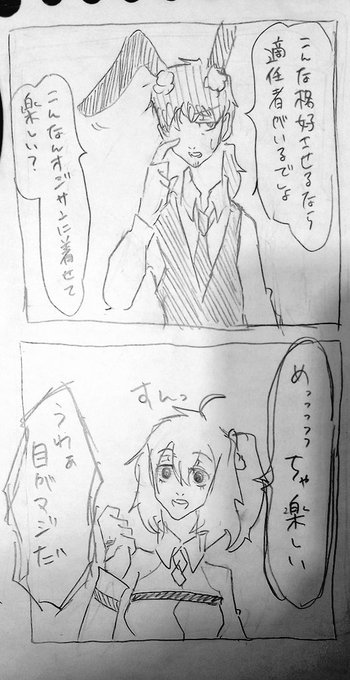 こんな格好させるなら
適任者がいるでしょ
こんなんオジサンに着せて
楽しい？
めっっっっっ
ちゃ楽しい
すんっ
うわぁ
目がマジだ